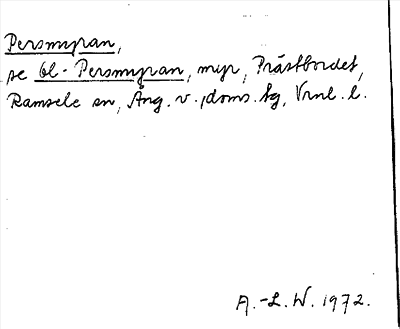 Persmyran,
se Ol-Persmyran, myr, Prästbordet,
Ramsele sn, Ång. v. doms. tg, Vrnl. l.
A.-L. W. 1972.